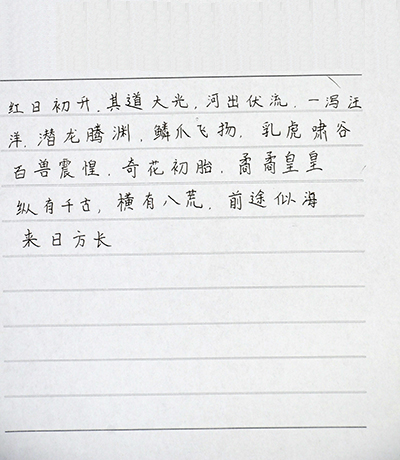 红日初升.其道大光,河出伏流.一泻汪
洋.潜龙腾渊.鳞爪飞扬.乳虎啸谷
百兽震惶.奇花初胎.矞矞皇皇
纵有千古,横有八荒.前途似海
来日方长